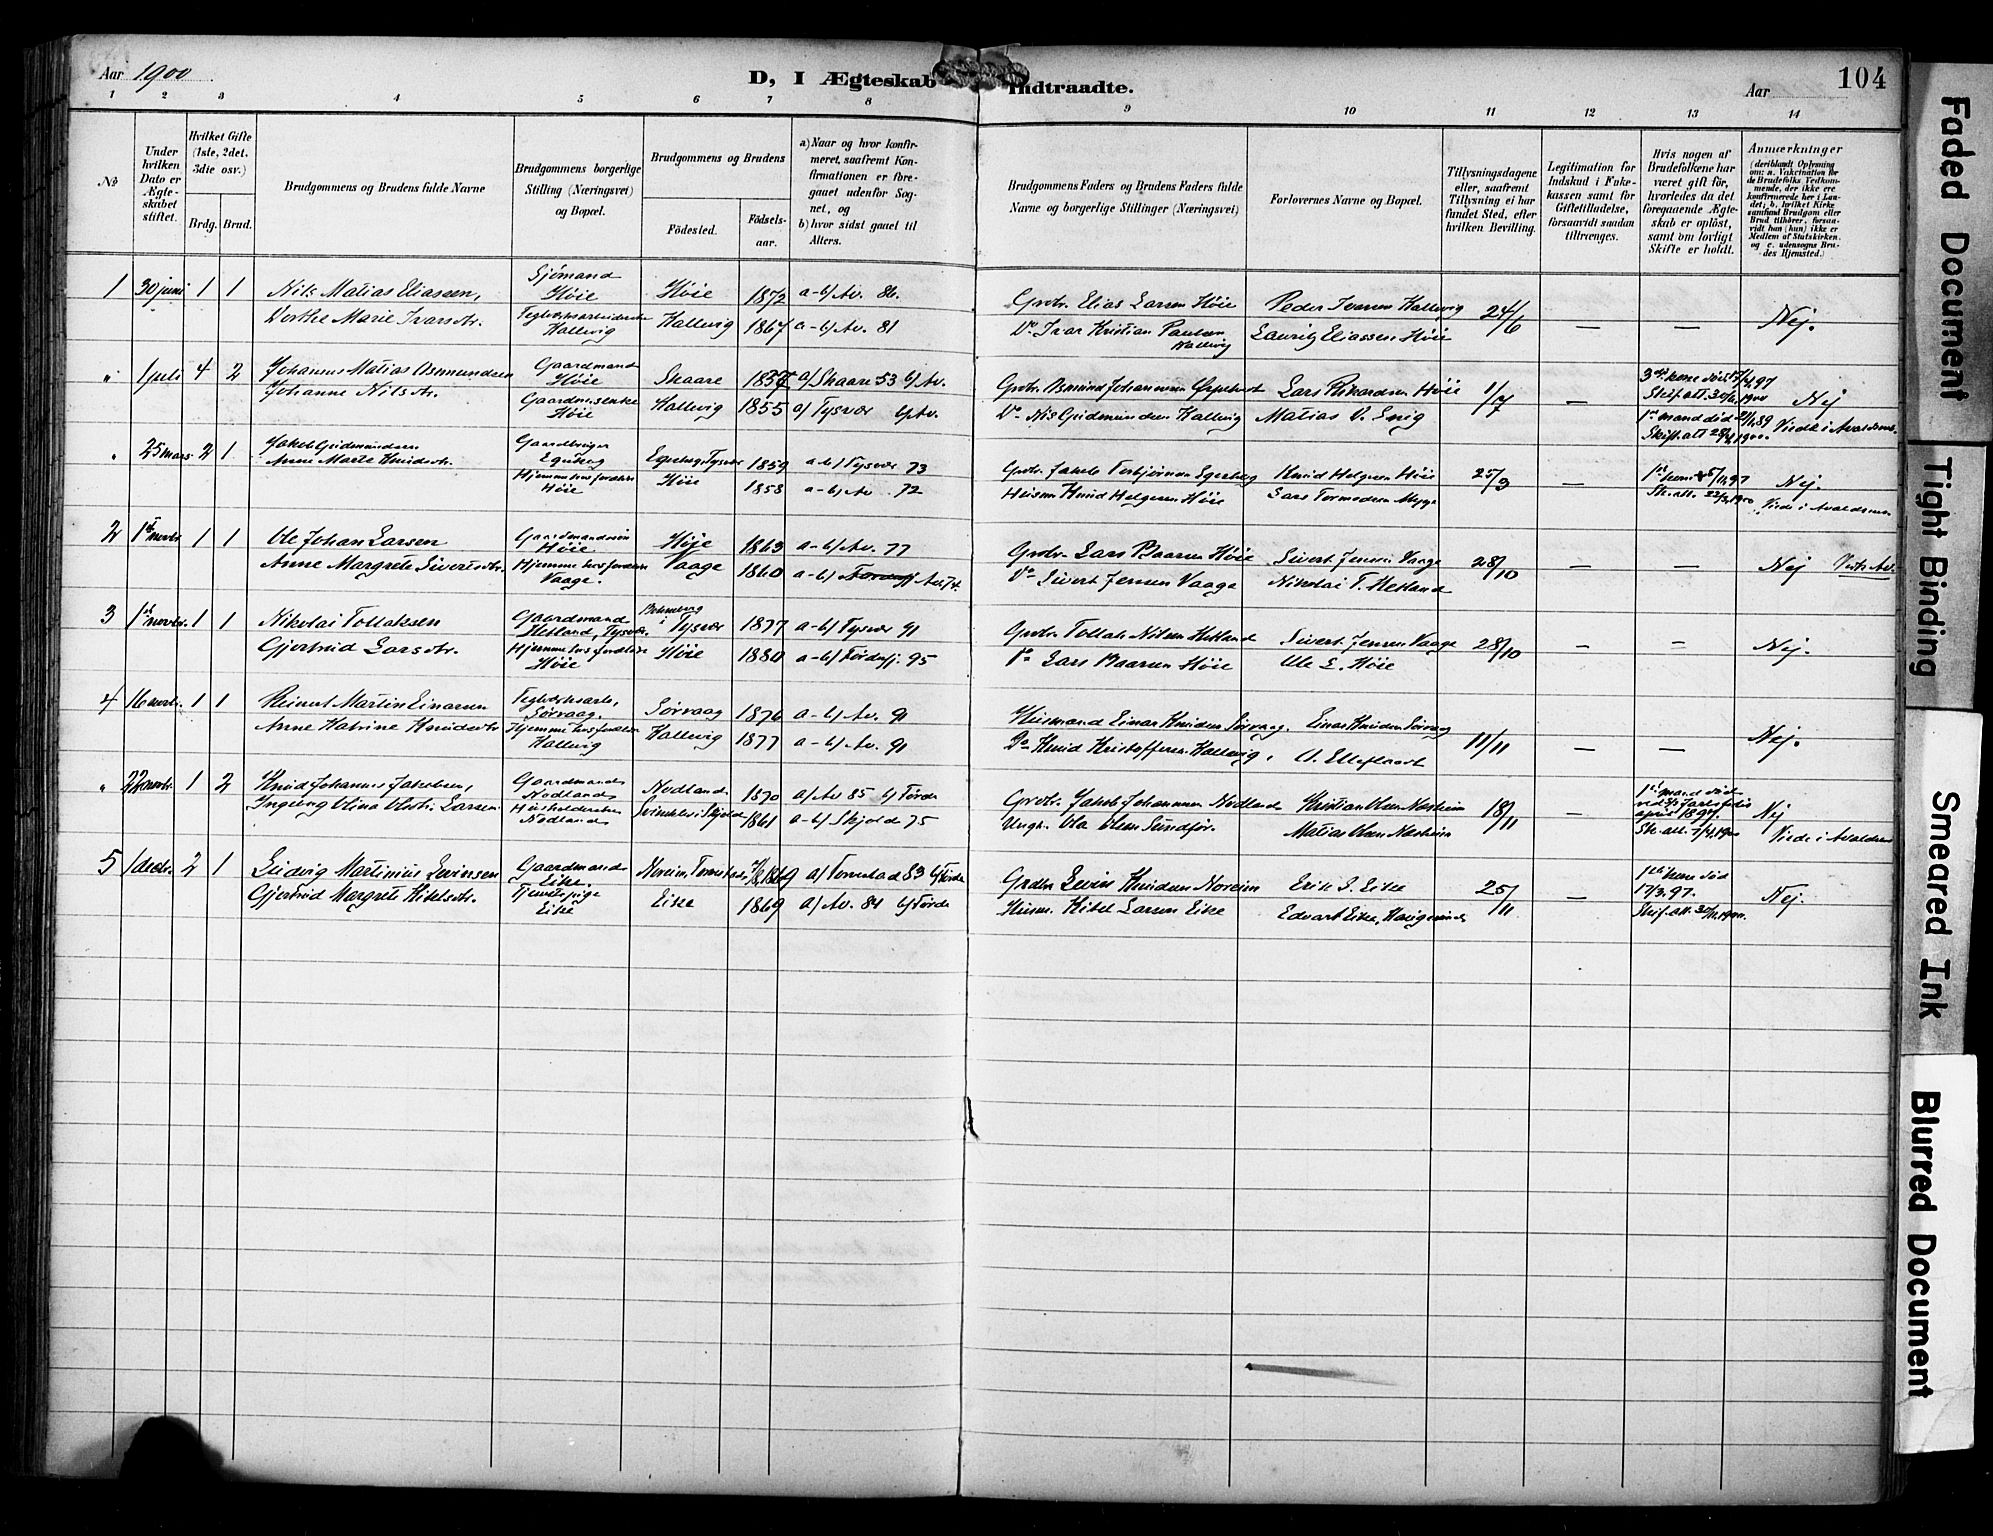 Aar 1900
D, I Ægteskab Indtraadte.
Aar
104
1 2 3 4 5 6 7 8 9 10 11 12 13 14
No
Under hvilken Dato er Ægteskabet stiftet.
Hvilket Gifte (1ste, 2det, 3die osv.)
Brdg. Brud.
Brudgommens og Brudens fulde Navne
Brudgommens borgerlige Stilling (Næringsvei) og Bopæl.
Brudgommens og Brudens
Fødested.
Fødselsaar.
a) Naar og hvor konfirmeret, saafremt Konfirmationen er foregaaet udenfor Sognet, og
b) hvor sidst gaaet til Alters.
Brudgommens Faders og Brudens Faders fulde Navne og borgerlige Stillinger (Næringsvei)
Forlovernes Navne og Bopæl.
Tillysningsdagene eller, saafremt Tillysning ei har fundet Sted, efter hvilken Bevilling.
Legitimation for Indskud i Enkekassen samt for Giftetilladelse, forsaavidt saadan tiltrænges.
Hvis nogen af Brudefolkene har været gift før, hvorledes da det foregaaende Ægteskab er opløst, samt om lovligt Skifte er holdt.
Anmærkninger (deriblandt Oplysning om: a. Vakcination for de Brudefolks Vedkommende, der ikke ere konfirmerede her i Landet; b. hvilket Kirkesamfund Brudgom eller Brud tilhører, forsaavidt han (hun) ikke er Medlem af Statskirken, og c. udensogns Brudes Hjemsted.)
1 30 juni 1 1 Nils Matias Eliassen, Sjömand Höie Höie 1872 a-b) Av. 86. Grbr. Elias Larsen Höie Peder Ivarsen Hallevig 24/6 — — Nej.
Dorthe Marie Ivarsdtr. Teglverksarbeiderske Hallevig Hallevig 1867 a-b) Av. 81 Do Ivar Kristian Paulsen Hallevig Lauritz Eliassen Höie
" 1 juli 4 2 Johannes Matias Asmundsen Gaardmand Höie Skaare a) Skaare 53 b) Av. Grbr. Asmund Johannesen Lars Rikardsen Höie 1/7 — 3die kone död 97 Skif. att. 1900 Nej
Johanne Nilsdtr. Gaardm. enke Höie Hallevig 1855 a) Tysvær b) Av. Do Nils Gudmundsen Hallevig Matias V. Snig 1ste mand död 89 Skift. att 1900. Viede i Avaldsnes.
" 25 mars 2 1 Jakob Gudmundsen Gaardbruger Egeberg Egeberg, Tysvær 1859 a-b) Tysvær 73 Grbr. Jakob Torbjörnsen Egeberg Knud Helgesen Höie 25/3 — 1ste kone 97 Sk. att. 1900 Nej.
Anne Marte Knudsdtr. Hjemme hos foreldre Höie Höie 1858 a-b) Av. 72 Husm Knud Helgesen Höie Lars Tormodsen Viede i Avaldsnes
2 1ste novbr. 1 1 Ole Johan Larsen Gaardmandssön Höie Höie 1863 a-b) Av. 77 Grbr. Lars Baarsen Höie Sivert Jensen Vaage 28/10 — — Nej Viede Av.
Anne Margrete Sivertsdtr. Hjemme hos foreldre Vaage. Vaage 1860 a-b) Av. 74. Do Sivert Jensen Vaage Nikolai T. Hetland
3 1ste novbr. 1 1 Nikolai Tollaksen Gaardmand Hetland, Tysvær. i Tysvær 1877 a-b) Tysvær 91 Grbr. Tollak Nilsen Hetland Sivert Jensen Vaage 28/10 — — Nej.
Gjertrud Larsdtr. Hjemme hos foreldre Höie Höie 1880 a-b) Fördesfj. 95 Do Lars Baarsen Höie Ole L. Höie
4 16 novbr. 1 1 Reinert Martin Einarsen Teglverksarb., Sörvaag. Sörvaag 1876 a-b) Av. 91 Husmand Einar Knudsen Sörvaag. Einar Knudsen Sörvaag 11/11 — — Nej.
Anne Katrine Knudsdtr. Hjemme hos foreldre Hallevig Hallevig 1877 a-b) Av. 91 Do Knud Kristoffersen Hallevig. O. Elleflaadt
" 22 novbr. 1 2 Knud Johannes Jakobsen, Gaardmand Nodland Nodland 1870 a) Av 85 b) Förde Grbr. Jakob Johannesen Nodland Kristian Olsen Næsheim 18/11 — 1ste mand död april 1897. Sk. att. 1900 Nej
Ingeborg Olina Olsdtr. Larsen. Husholderske Nodland i Skjold 1861 a-b) Skjold 75 Ungk. Ola Olsen Sundför. Matias Olsen Næsheim Viede i Avaldsnes
5 1 decbr. 2 1 Ludvig Martinius Sevrinsen Gaardmand Eike. Noreim, Torvestad 1869 a) Torvestad 83 b) Förde Grdbr. Knudsen Noreim Erik S. Eike 25/11 — 1ste kone död 17/3.97. Skif. att. 1900. Nej.
Gjertrud Margrete Kitelsdtr. Tjenestepige Eike Eike 1869 a) Av. 84 b) Förde Husm. Kitel Larsen Eike Edvart Eike, Haugesund
Faded Document
Tight Binding
Smeared Ink
Blurred Document